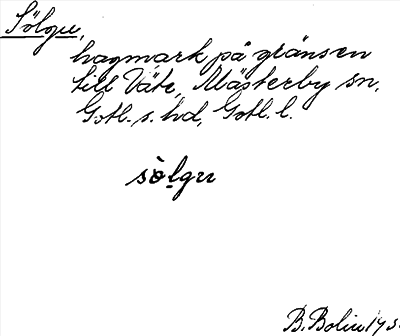 Sölgu,
hagmark på gränsen
till Väte, Mästerby sn,
Gotl. s. hd, Gotl. l.
sòlgu
B. Bolin